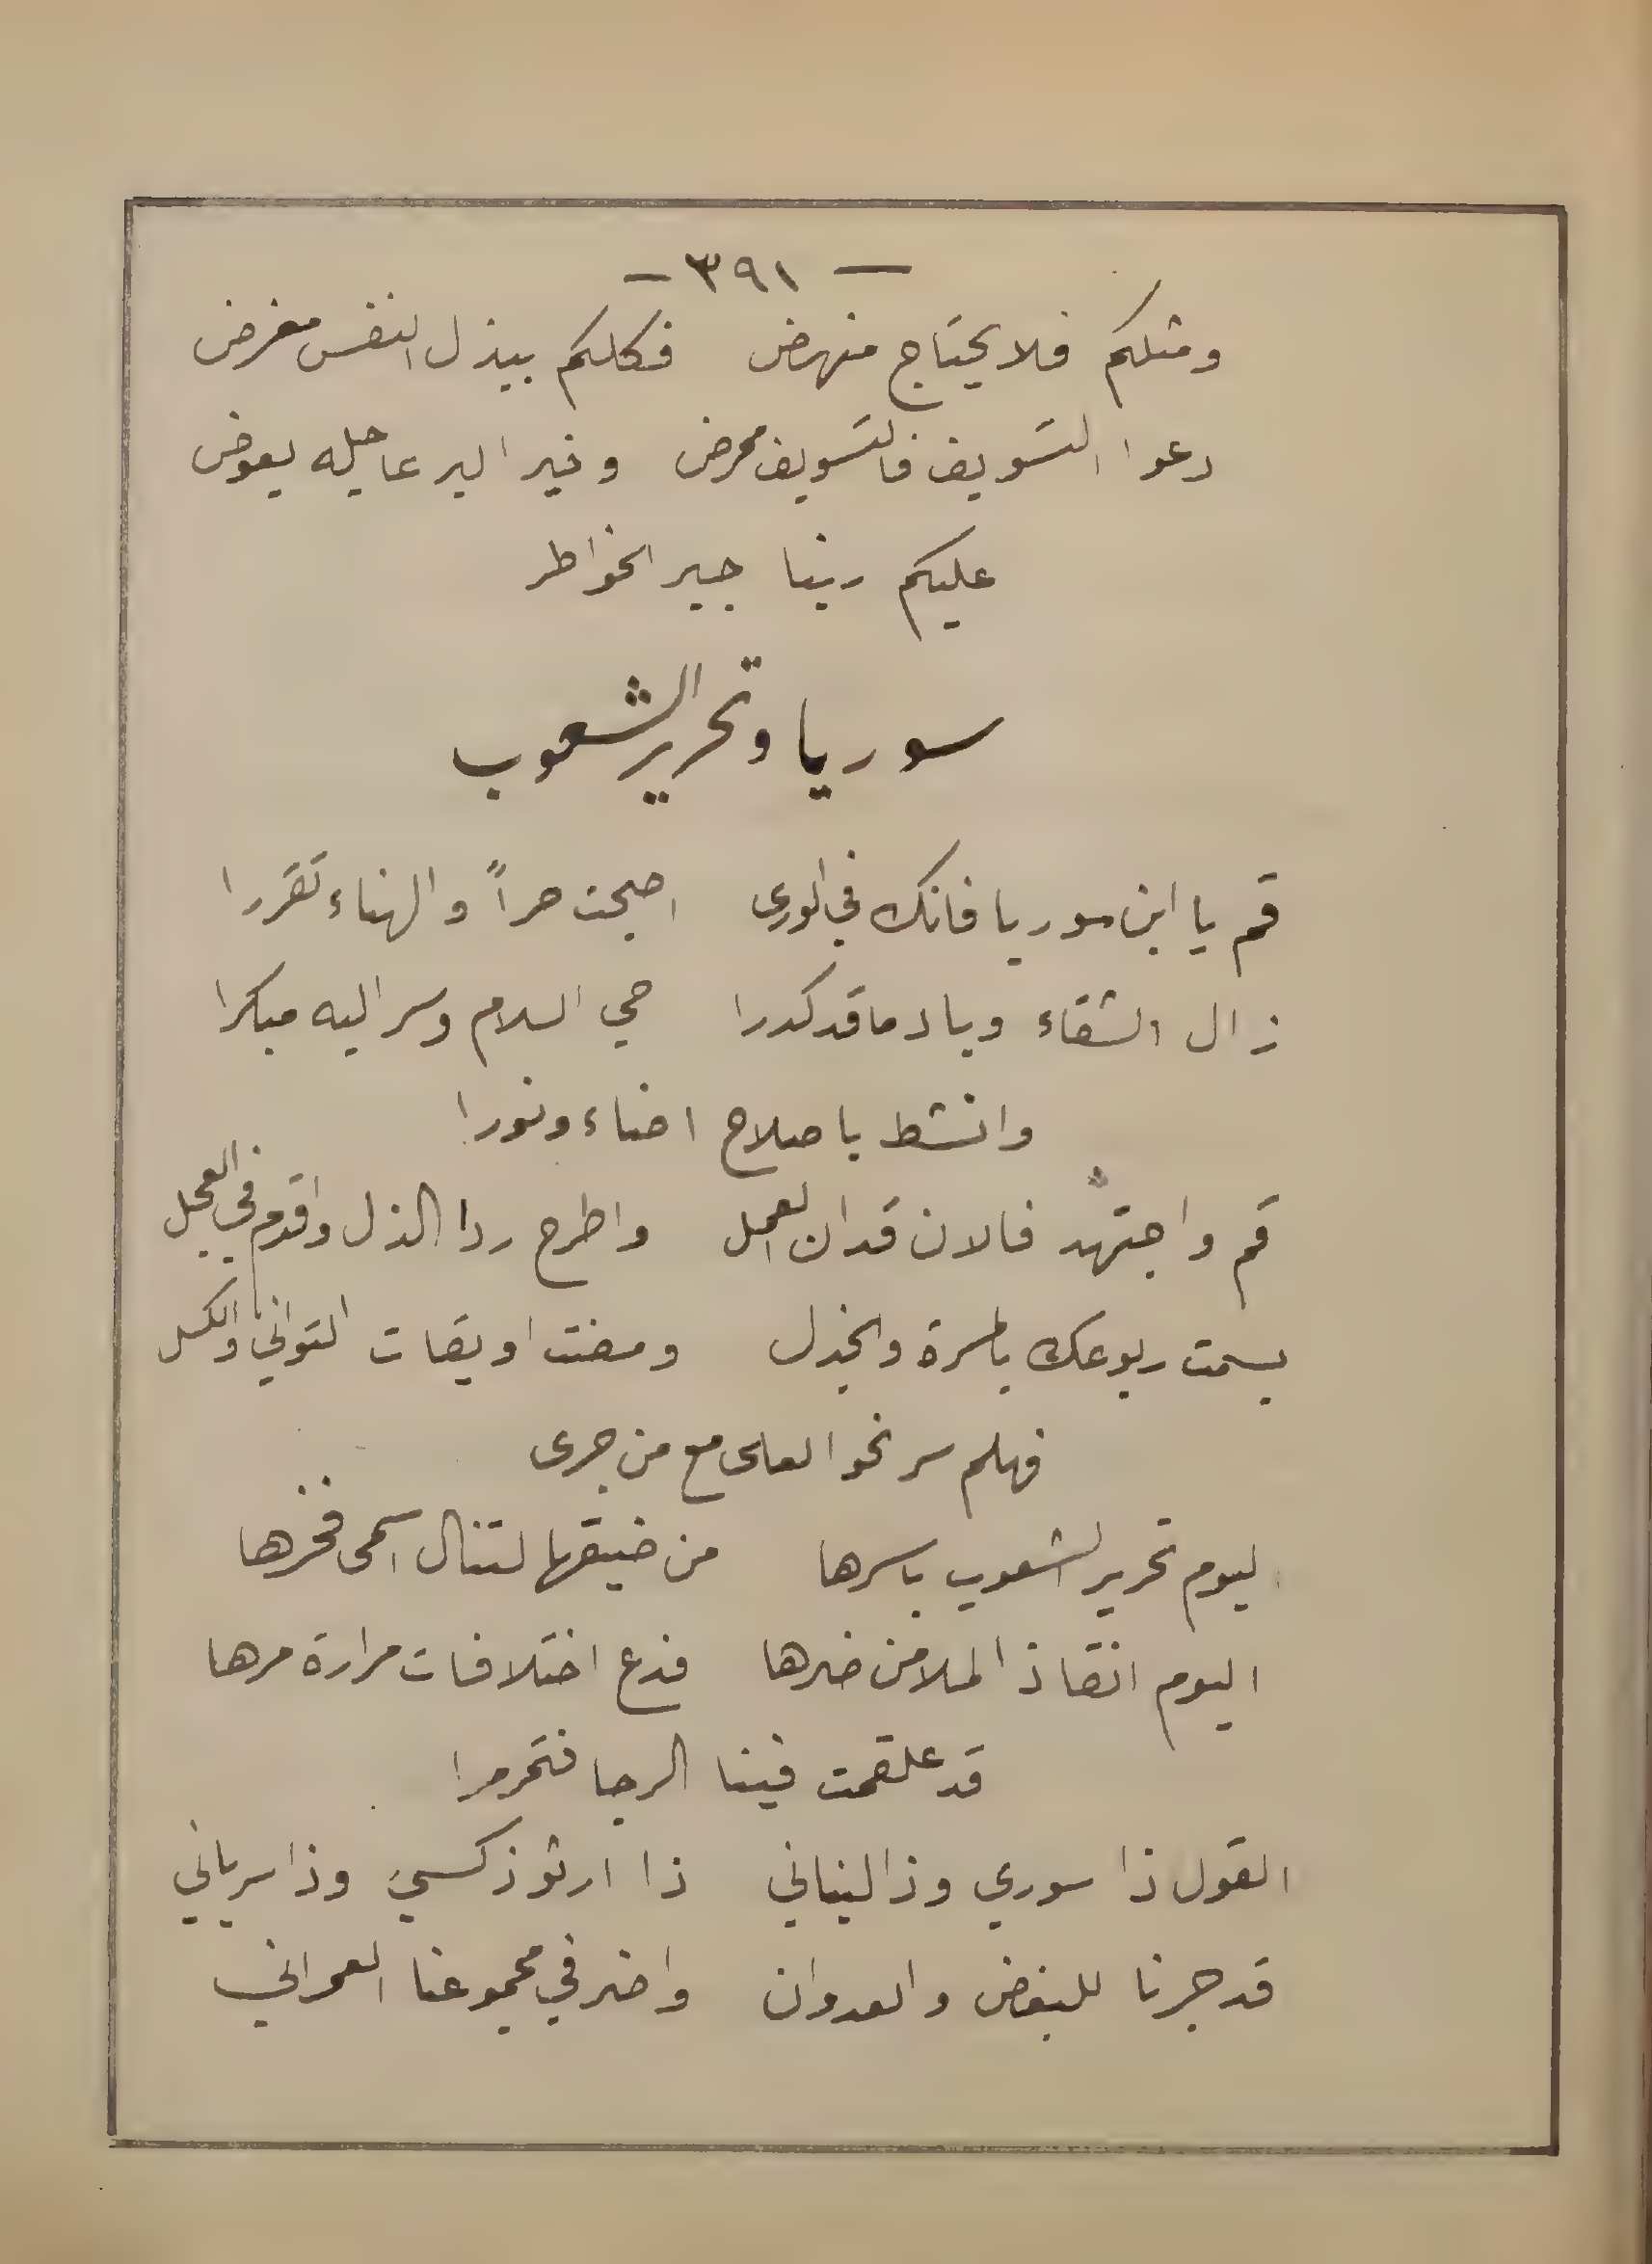 — ٣٩١ —
ومثلكم فلا يحتاج منهض فكلكم ببذل النفس مغرض
دعوا التسويف فالتسويف محرض وخير البر عاجله يعوض
عليكم ربنا جبر الخواطر
سوريا وتحرير الشعوب
قم يا ابن سوريا فانك في الورى اصبحت حراً والهناء تقررا
زال الشقاء وباد ما قد كدرا حي السلام وسر اليه مبكرا
وانشط باصلاح اضاء ونورا
قم واجتهد فالان قد ان العمل واطرح ردا الذل واقدم في العجل
بسمت ربوعك بالمسرة والجذل ومضت اويقات التواني والكسل
فهلم سر نحو العلى مع من جرى
ليوم تحرير الشعوب باسرها من ضيقها لتنال اسمى فخرها
اليوم انقاذ الملا من ضرها فدع اختلافات مرارة مرها
قد علقمت فينا الرجا فتمرمرا
القول ذا سوري وذا لبناني ذا ارثوذكسي وذا سرياني
قد جرنا للبغض والعدوان واضر في مجموعنا العمراني